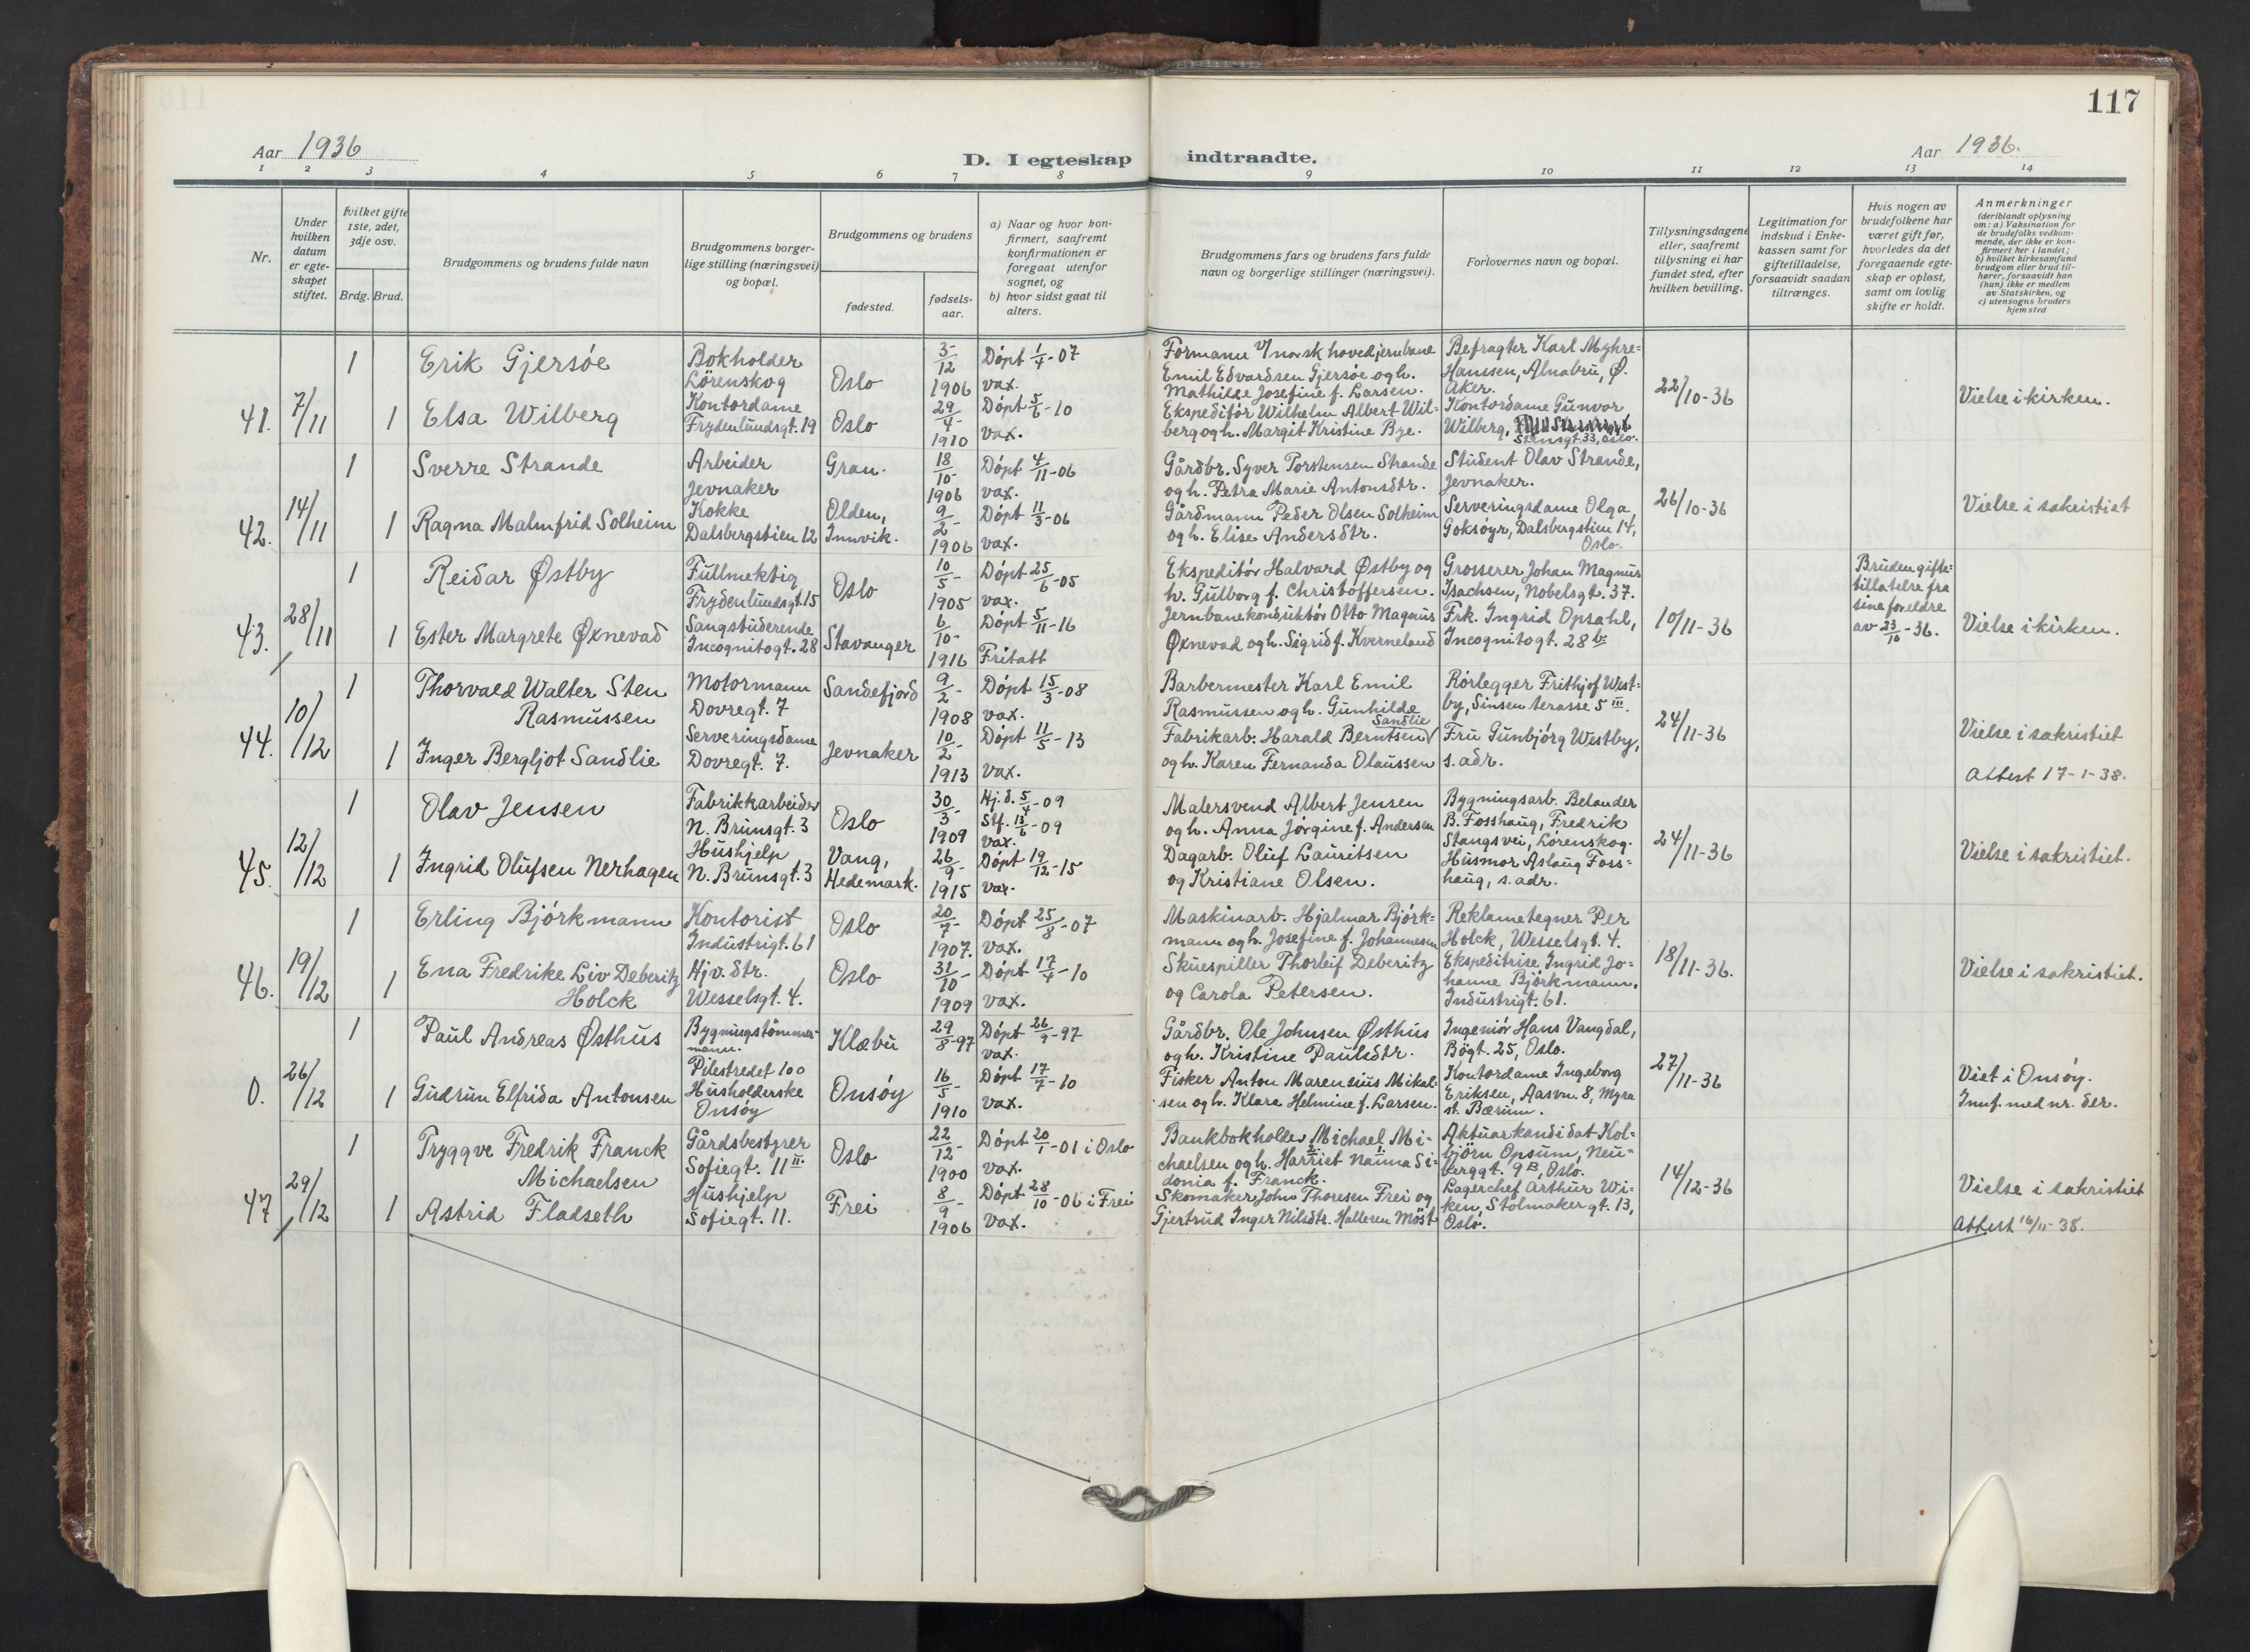 117
Aar 1936
D. I egteskap indtraadte.
Aar 1936.
1 2 3 4 5 6 7 8 9 10 11 12 13 14
Nr.
Under
hvilken
datum
er egte-
skapet
stiftet.
Hvilket gifte
1ste, 2det,
3dje osv.
Brdg. Brud.
Brudgommens og brudens fulde navn
Brudgommens borger-
lige stilling (næringsvei)
og bopæl.
Brudgommens og brudens
fødested.
fødsels-
aar.
a) Naar og hvor kon-
firmert, saafremt
konfirmationen er
foregaat utenfor
sognet, og
b) hvor sidst gaat til
alters.
Brudgommens fars og brudens fars fulde
navn og borgerlige stillinger (næringsvei).
Forlovernes navn og bopæl.
Tillysningsdagene
eller, saafremt
tillysning ei har
fundet sted, efter
hvilken bevilling.
Legitimation for
indskud i Enke-
kassen samt for
giftetilladelse,
forsaavidt saadan
tiltrænges.
Hvis nogen av
brudefolkene har
været gift før,
hvorledes da det
foregaaende egte-
skap er opløst,
samt om lovlig
skifte er holdt.
Anmerkninger
(deriblandt oplysning
om: a) Vaksination for
de brudefolks vedkom-
mende, der ikke er kon-
firmert her i landet;
b) hvilket kirkesamfund
brudgom eller brud til-
hører, forsaavidt han
(hun) ikke er medlem
av Statskirken, og
c) utensogns bruders
hjemsted
41. 7/11
1 Erik Gjersøe
Bokholder
Lörenskog
Oslo
3/12 1906
Döpt 1/4-07
vax.
Formann v/norsk hovedjernbane
Emil Edvardsen Gjersøe og h.
Mathilde Josefine f. Larsen.
Befragter Karl Myhre=
Hanssen, Alnabru, Ø.
Aker.
22/10-36
Vielse i kirken.
1 Elsa Wilberg
Kontordame
Frydenlundsgt. 19
Oslo
29/4 1910
Döpt 5/6-10
vax.
Ekspeditör Wilhelm Albert Wil=
berg og h. Margit Kristine Bye.
Kontordame Gunvor
Wilberg,
Stensgt 33, Oslo.
42. 14/11
1 Sverre Strande
Arbeider
Jevnaker
Gran.
18/10 1906
Döpt 4/11-06
vax.
Gårdbr. Syver Torstensen Strande
og h. Petra Marie Antonsdtr.
Student Olav Strande,
Jevnaker.
26/10-36
Vielse i sakristiet
1 Ragna Malmfrid Solheim
Kokke
Dalsbergstien 12
Olden,
Innvik.
9/2 1906
Döpt 11/3-06
vax.
Gårdmann Peder Olsen Solheim
og h. Elise Andersdtr.
Serveringsdame Olga
Goksöyr, Dalsbergstien 14,
Oslo.
43. 28/11
1 Reidar Østby
Fullmektig
Frydenlundsgt. 15
Oslo
10/5 1905
Döpt 25/6-05
vax.
Ekspeditör Halvard Østby og
h. Gulborg f. Christoffersen.
Grosserer Johan Magnus
Isachsen, Nobelsgt. 37.
10/11-36
Bruden gifte=
tillatelse fra
sine foreldre
av 23/10-36.
Vielse i kirken.
1 Ester Margrete Øxnevad
Sangstuderende
Incognitogt. 28
Stavanger
6/10 1916
Döpt 5/11-16
Fritatt
Jernbanekonduktör Otto Magnus
Øxnevad og h. Sigrid f. Kverneland
Frk. Ingrid Opsahl,
Incognitogt. 28 b.
44. 10/12
1 Thorvald Walter Sten
Rasmussen
Motormann
Dovregt. 7
Sandefjord
9/2 1908
Döpt 15/3-08
vax.
Barbermester Karl Emil
Rasmussen og h. Gunhilde
Rörlegger Frithjof West=
by, Sinsen terasse 5 III.
24/11-36
Vielse i sakristiet
1 Inger Bergljot Sandlie
Serveringsdame
Dovregt. 7.
Jevnaker
10/2 1913
Döpt 11/5-13
vax.
Sandlie
Fabrikarb. Harald Berntsen
og h. Karen Fernanda Olaussen
Fru Gunbjörg Westby,
s. adr.
Attest 17-1-38.
45. 12/12
1 Olav Jensen
Fabrikkarbeider
N. Brunsgt. 3
Oslo
30/3 1909
Hj.d. 5/4-09
Stf. 13/6-09
vax.
Malersvend Albert Jensen
og h. Anna Jörgine f. Andersen
Bygningsarb. Belander
B. Fosshaug, Fredrik
Stangs vei, Lörenskog.
24/11-36
Vielse i sakristiet.
1 Ingrid Olufsen Nerhagen
Hushjelp
N. Brunsgt. 3
Vang,
Hedemark.
26/9 1915
Döpt 19/12-15
vax.
Dagarb. Oluf Lauritsen
og Kristiane Olsen.
Husmor Aslaug Foss=
haug, s. adr.
46. 19/12
1 Erling Björkmann
Kontorist
Industrigt. 61
Oslo
20/7 1907.
Döpt 25/8-07
vax.
Maskinarb. Hjalmar Björk=
mann og h. Josefine f. Johannesen
Reklametegner Per
Holck, Wesselsgt. 4.
18/11-36.
Vielse i sakristiet.
1 Ena Fredrike Liv Deberitz
Holck
Hjv. dtr.
Wesselsgt. 4.
Oslo
31/10 1909
Döpt 17/4-10
vax.
Skuespiller Thorleif Deberitz
og Carola Petersen.
Ekspeditrise Ingrid Jo=
hanne Björkmann,
Industrigt. 61.
0. 26/12
1 Paul Andreas Østhus
Bygningstömmer-
mann.
Pilestredet 100
Klæbu
29/8-97
Döpt 26/9-97
vax.
Gårdbr. Ole Johnsen Østhus
og h. Kristine Paulsdtr.
Ingeniör Hans Vangdal,
Bögt. 25, Oslo.
27/11-36
Viet i Onsöy.
Innf. med nr. der.
1 Gudrun Elfrida Antonsen
Husholderske
Onsöy
Onsöy
16/5 1910
Döpt 17/7-10
vax.
Fisker Anton Marensius Mikal=
sen og h. Klara Helmine f. Larsen.
Kontordame Ingeborg
Eriksen, Aasvn. 8, Myra
st. Bærum.
47 29/12
1 Tryggve Fredrik Franck
Michaelsen
Gårdsbestyrer
Sofiegt. 11 II.
Oslo
22/12 1900
Döpt 20/1-01 i Oslo
vax.
Bankbokholder Michael Mi=
chaelsen og h. Harriet Nanna Si=
donia f. Franck.
Aktuarkandidat Kol=
björn Opsum, Neu=
berggt. 9 B, Oslo.
14/12-36
Vielse i sakristiet
1 Astrid Fladseth
Hushjelp
Sofiegt. 11.
Frei
8/9 1906
Döpt 28/10-06 i Frei
vax.
Skomaker John Thoresen Frei og
Gjertrud Inger Nilsdtr. Hallesen Möst
Lagerchef Arthur Wi=
ken, Stolmakergt. 13,
Oslo.
Attest 16/11-38.